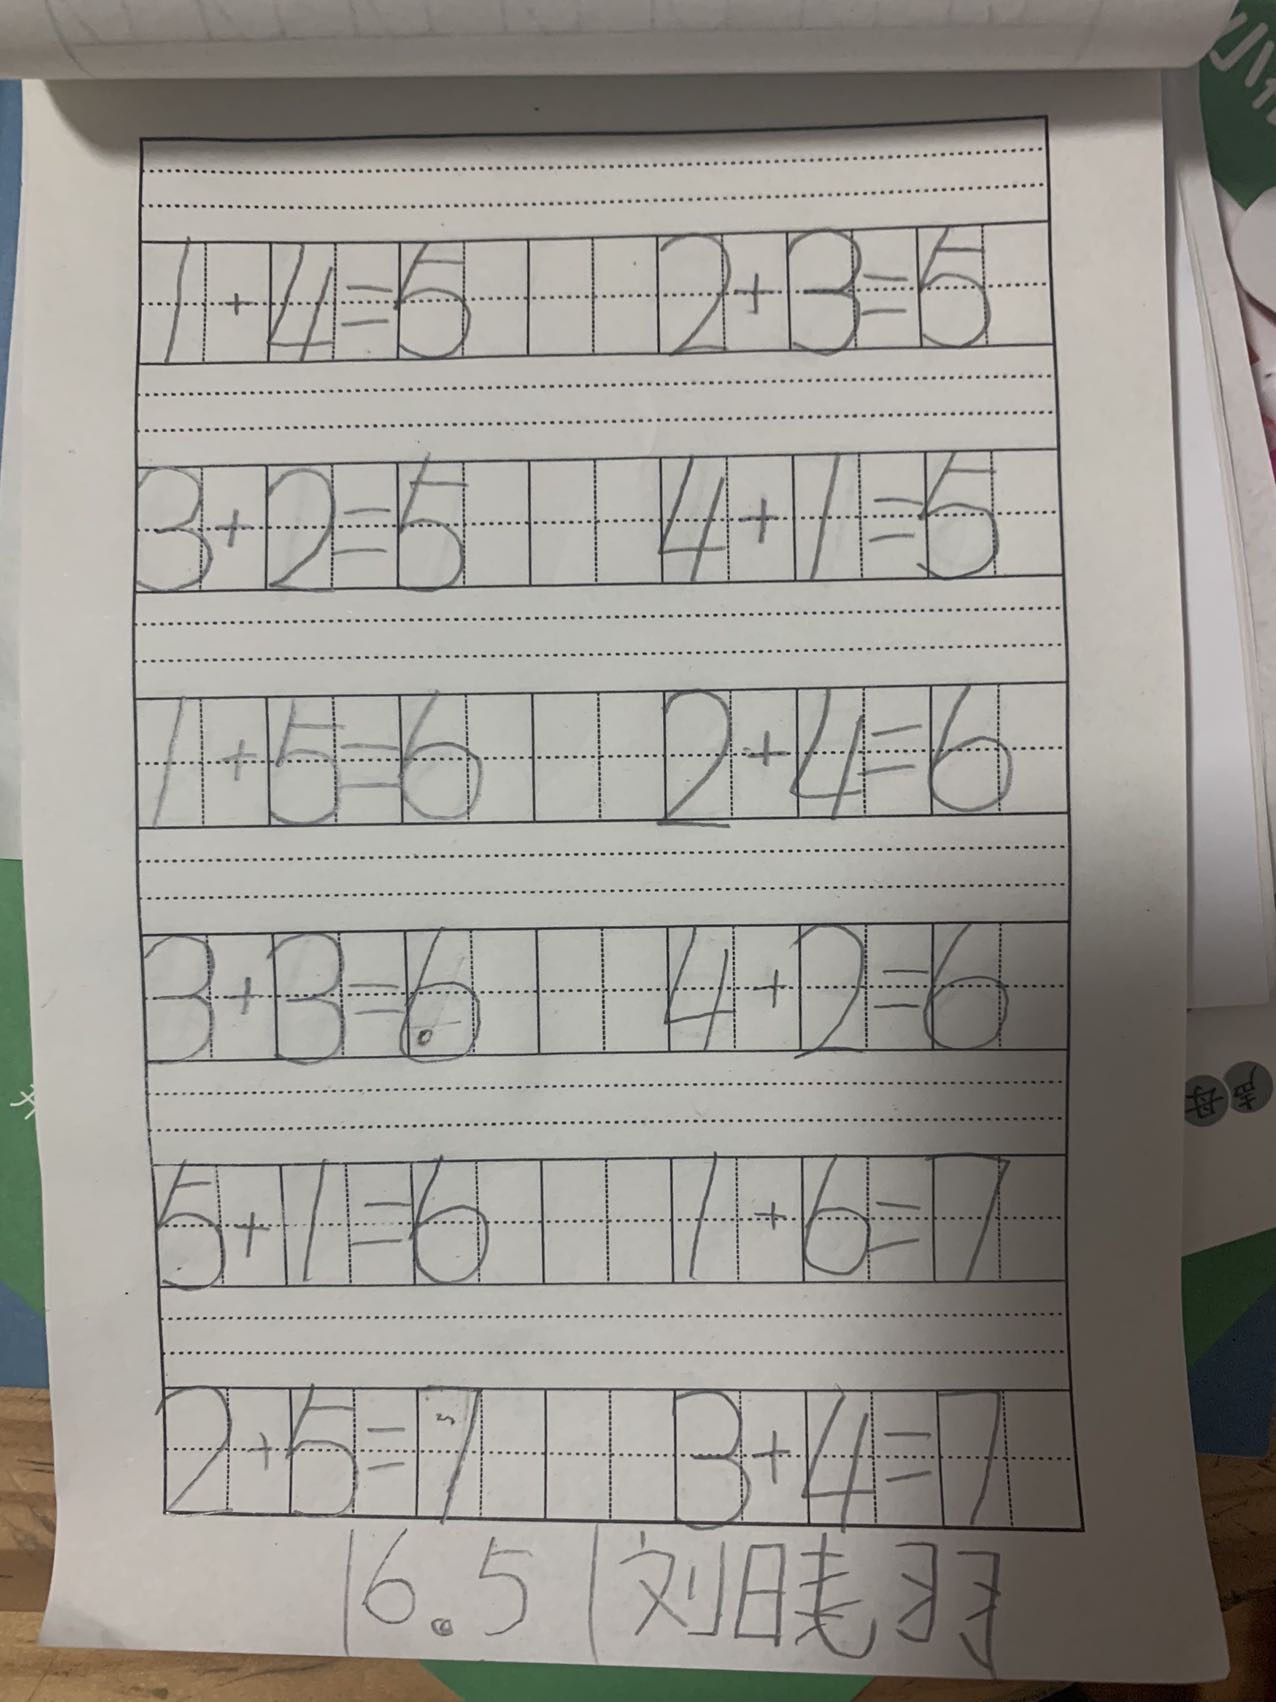 1+4=5 2+3=5
3+2=5 4+1=5
1+5=6 2+4=6
3+3=6 4+2=6
5+1=6 1+6=7
2+5=7 3+4=7
16.5 | 刘晓羽
声母